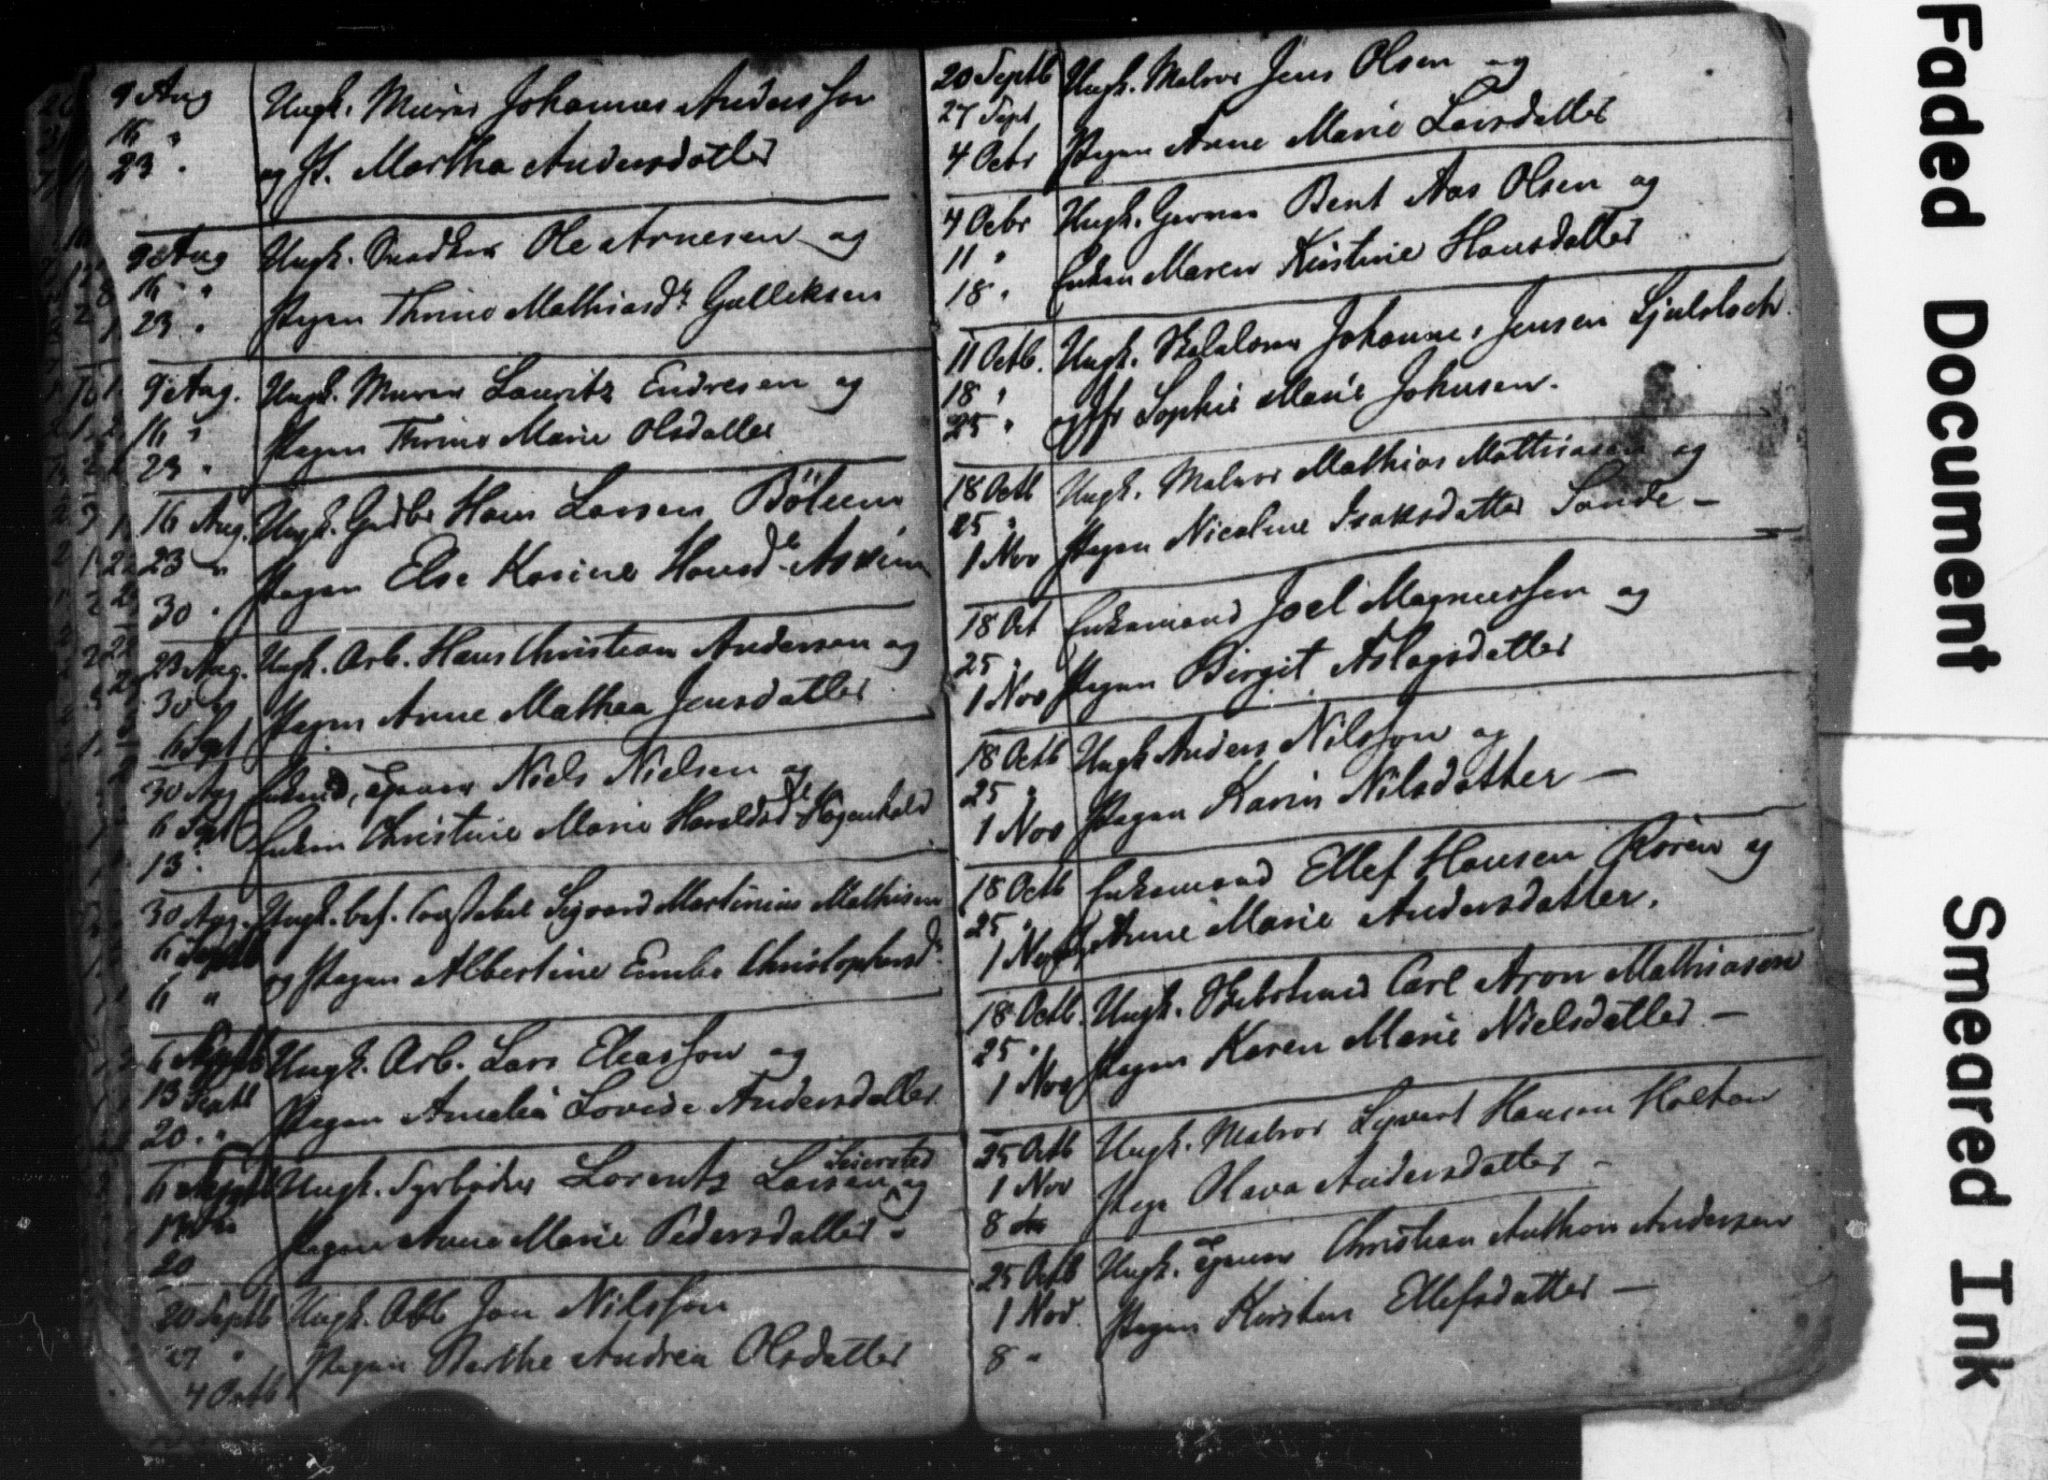 9 Aug Ungk. Murer Johannes Andersson
16 "
23 " og P. Martha Andersdatter
9 Aug Ungk. Snedker Ole Arnesen og
16 "
23 " Pigen Thrine Mathiasd. Gulliksen
9 Aug. Ungk. Murer Lauritz Endresen og
16 "
23 " Pigen Thrine Marie Olsdatter
16 Aug. Ungk. Gaardbr Hans Larsen Bölum
23 "
30 " Pigen Else Karine Hansdt. Askim
23 Aug. Ungk. Arb. Hans Christian Andersen og
30 "
6 Sept Pigen Anne Mathea Jensdatter
30 Aug Enkemd, Niels Nielsen og
6 Sept Enken Christine Marie Haraldsdt.
13 "
30 Aug. Ungk. Sigvard Martinius Mathisen
6 Septb
6 " og Pigen Albertine Emilie Christophersdt.
6 Septb Ungk. Arb. Lars Eliasson og
13 Septb
20 " Pigen Amalia Lovise Andersdatter
6 Septb Ungk. Fyrböder Lorentz Larsen Seiersted og
Pigen Anne Marie Pedersdatter
20
20 Septb Ungk. Arb Jon Nilsson
27 " Pigen Berthe Andrea Olsdatter
4 Octb
20 Septb Ungk. Matros Jens Olsen og
27 Sept
4 Octbr Pigen Anne Marie Larsdatter
4 Octbr Ungk. Garver Bent Aas Olsen og
11 "
18 " Enken Maren Kirstine Hansdatter
11 Octb. Ungk. Johannes Jensen
18 "
25 " og Jfr Sophie Marie Johnsen.
18 Octb Ungk. Matros Mathias Mathiasen og
25 "
1 Nov Pigen Nicoline Isaksdatter Sande —
18 Oct Enkemand Joel Magnussen og
25 "
1 Nov Pigen Birgit Aslagsdatter
18 Octb Ungk Anders Nilsson og
25 "
1 Nov Pigen Karin Nilsdatter —
18 Octb Enkemand Ellef Hansen Røren og
25 "
1 Nov Anne Marie Andersdatter.
18 Octb. Ungk. Carl Aron Mathiasen
25 "
1 Nov Pigen Karen Marie Nielsdatter —
25 Octb Ungk. Matros Syvert Hansen Holtan
1 Nov
8 Pige Olava Andersdatter —
25 Octb Ungk. Christian Anthon Andersen
1 Nov.
8 " Pigen Kirsten Ellefsdatter —
Faded Document
Smeared Ink